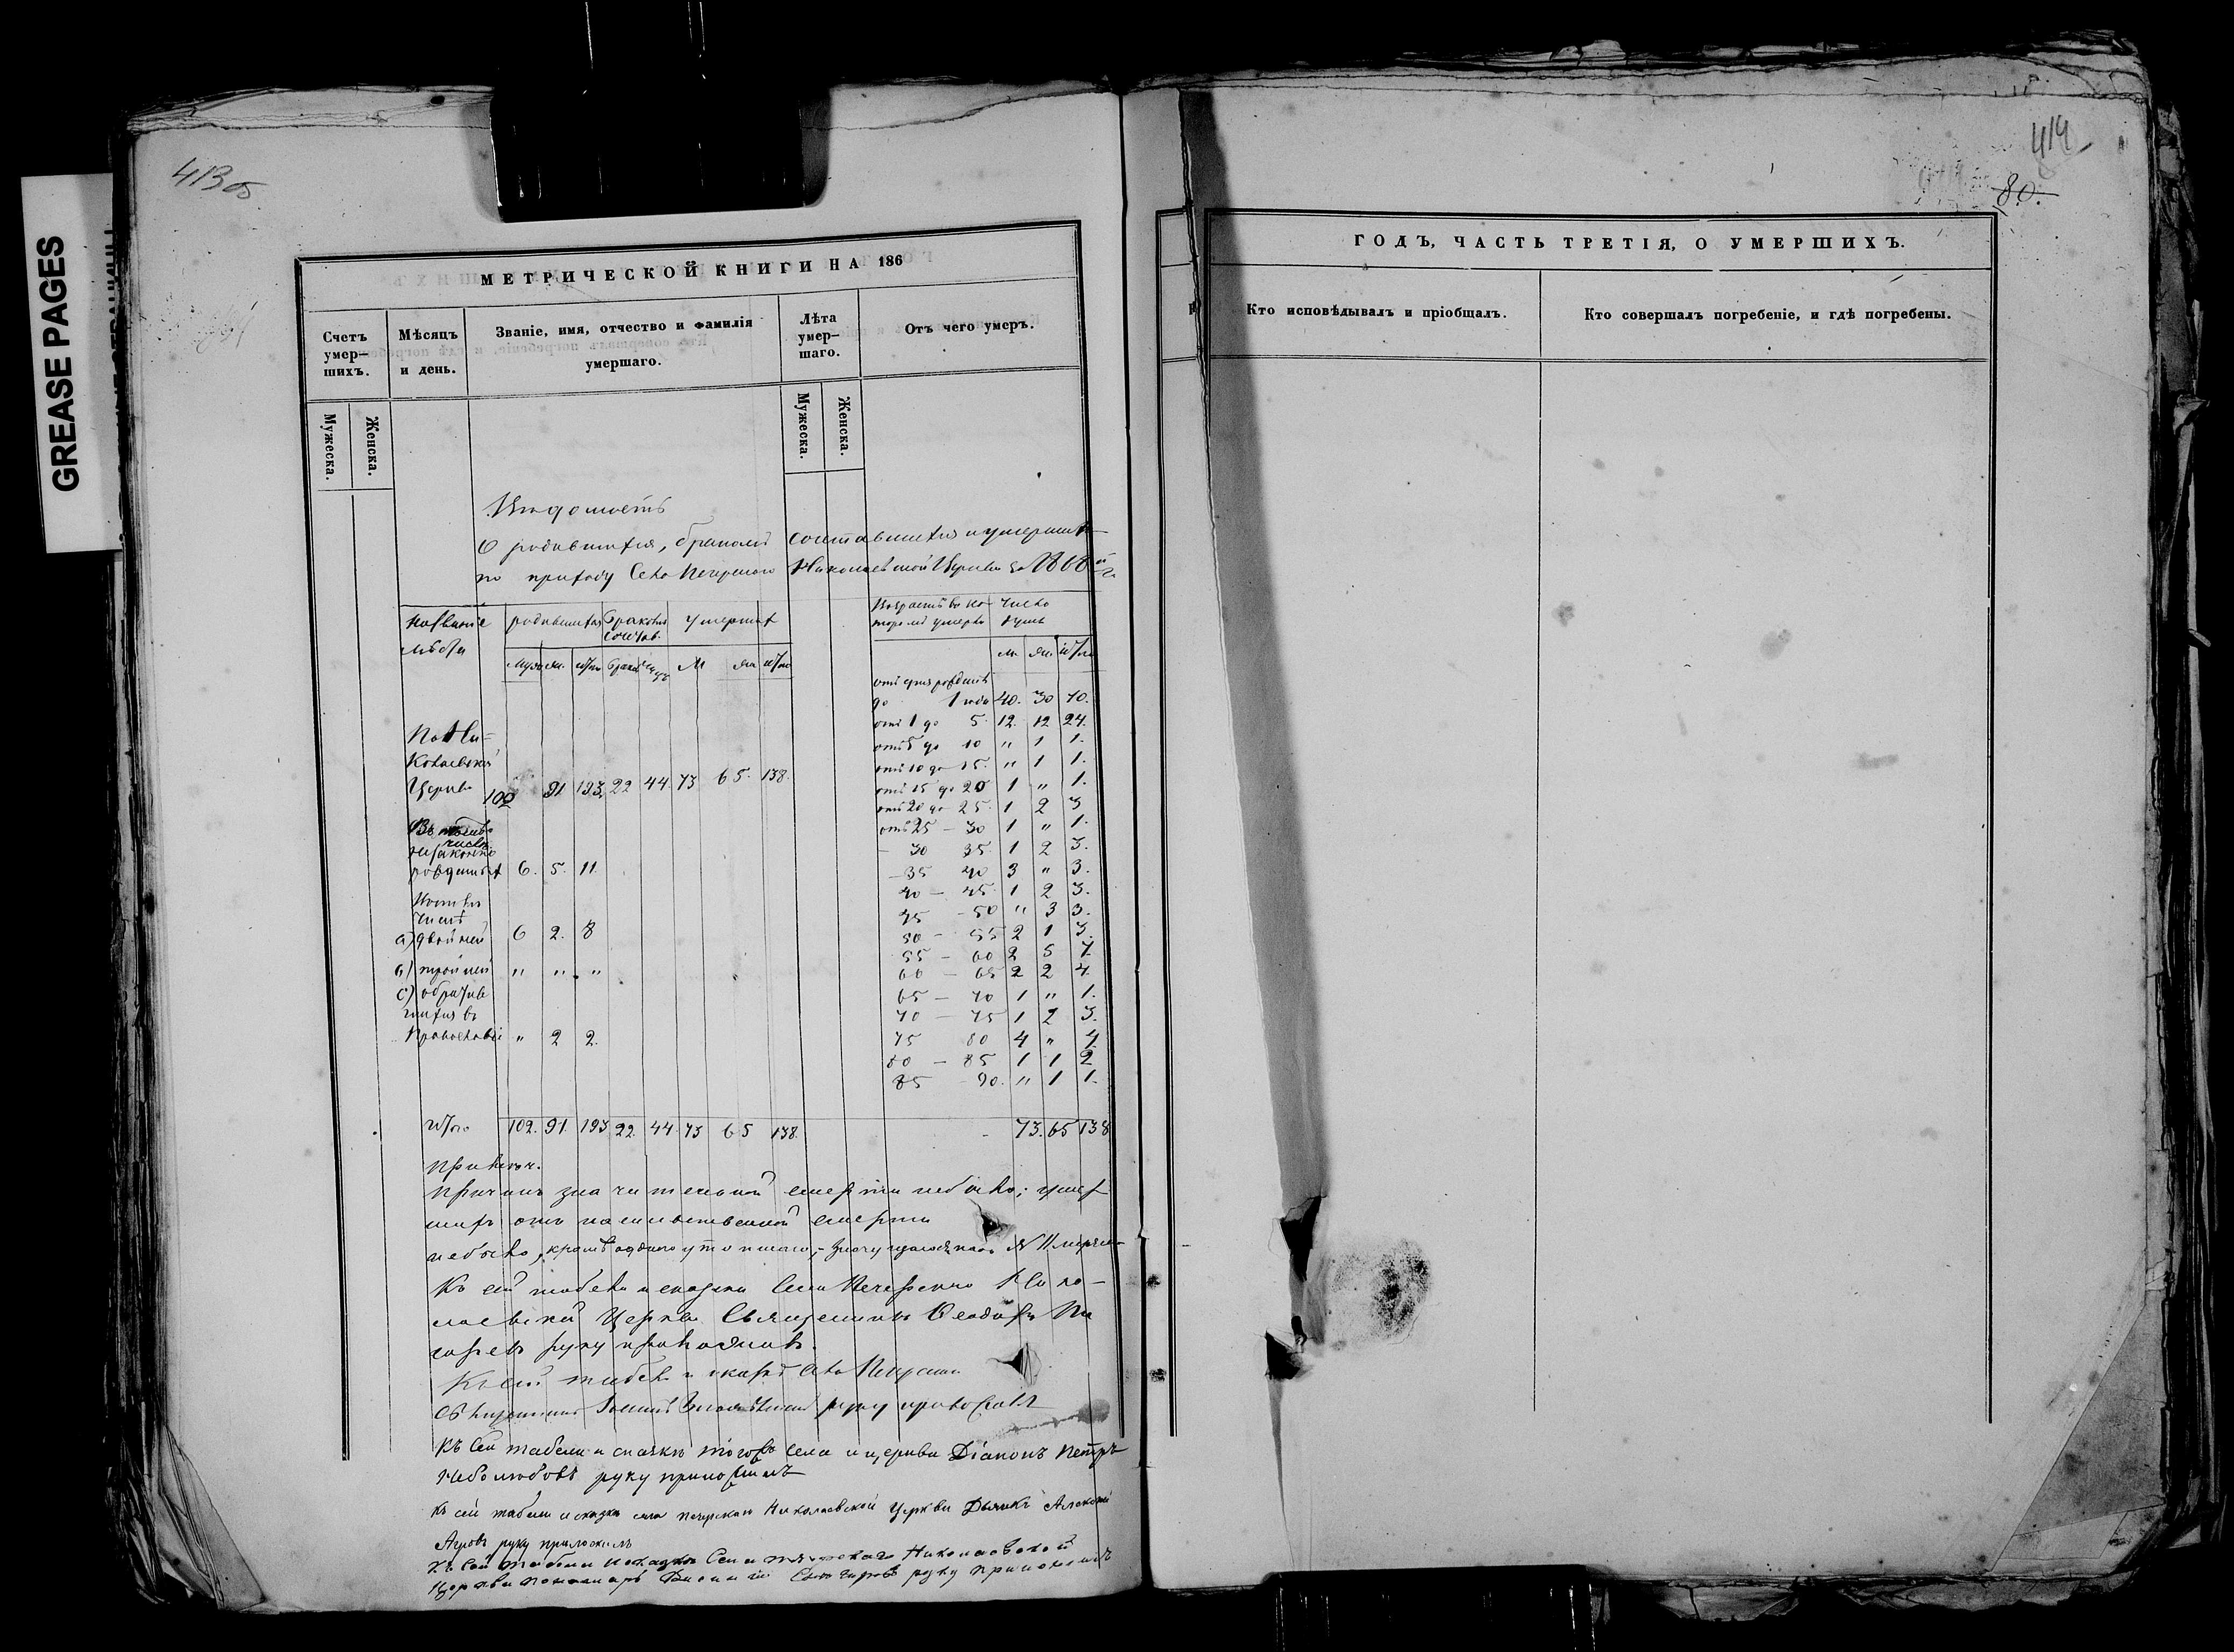 GREASE PAGES
413об
МЕТРИЧЕСКОЙ КНИГИ НА 186
Счетъ умер-шихъ.
Мѣсяцъ и день.
Званіе, имя, отчество и фамилія умершаго.
Лѣта умер-шаго.
Отъ чего умеръ.
Мужеска.
Женска.
Мужеска.
Женска.
Вѣдомость
О родившихся, бракомъ сочетавшихся и умершихъ
по приходу Села Печерскаго Николаевской Церкви за 1868й г.
Названіе мѣста
родившихся
браковъ сочетав.
умершихъ
Возрастъ въ ко-тором умерли
число душъ
муж. жен. итого
м жен итого
м. жен. итого
отъ дня рожденія
до 1 года 40. 30 70.
отъ 1 до 5. 12. 12 24.
отъ 5 до 10 " 1 1.
отъ 10 до 15. " 1 1.
отъ 15 до 20 1 " 1.
отъ 20 до 25. 1 2 3
отъ 25 — 30 1 " 1.
30 35. 1 2 3.
35 40 3 " 3.
40 — 45. 1 2 3.
45 — 50 " 3 3.
50 — 55 2 1 3.
55 — 60 2 5 7
60 — 65 2 2 4.
65 — 70 1 " 1.
70 — 75 1 2 3.
75 80 4 " 4
80 — 85 1 1 2
85 — 90. " 1 1.
По Ни-
колаевской
Церкви 102 91 193. 22 44 73 65. 138.
Въ томъ числѣ
незаконно
рожденныхъ 6. 5. 11.
числѣ
а) двойней 6 2. 8
б) тройней " " "
с) обратив
шихся въ
Православіе " 2 2.
Итого 102. 91. 193 22. 44. 73 65 138. 73. 65 138
Причинъ значительной смерти небыло; умер
шихъ отъ насильственной смерти
небыло, кромѣ одного
Къ сей табели и сказки Села Печерскаго Нико-
лаевской Церкви Священникъ Феодоръ
руку приложилъ.
Къ сей табели и сказкѣ села Печерскаго
Священникъ руку приложилъ
Къ сей табели и сказкѣ тогожъ села и церкви Діаконъ Петръ
Неболюбовъ руку приложилъ
Къ сей табели и сказки села Печерскаго Николаевской Церкви Дьячекъ Алексѣй
руку приложилъ
Къ сей табели и сказки Села Печерскаго Николаевской
Церкви пономарь руку приложилъ
414
80.
ГОДЪ, ЧАСТЬ ТРЕТІЯ, О УМЕРШИХЪ.
Кто исповѣдывалъ и пріобщалъ.
Кто совершалъ погребеніе, и гдѣ погребены.